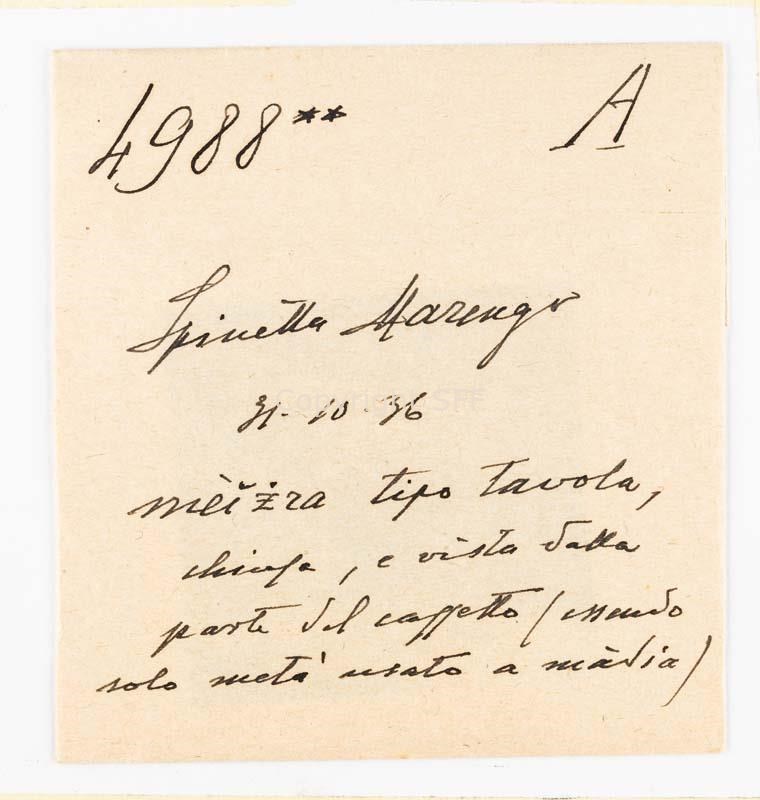 4988** A
Spinetta Marengo
31-10-36
mèižra tipo tavola,
chiusa, e vista dalla
parte del cassetto (essendo
solo metà usato a màdia)